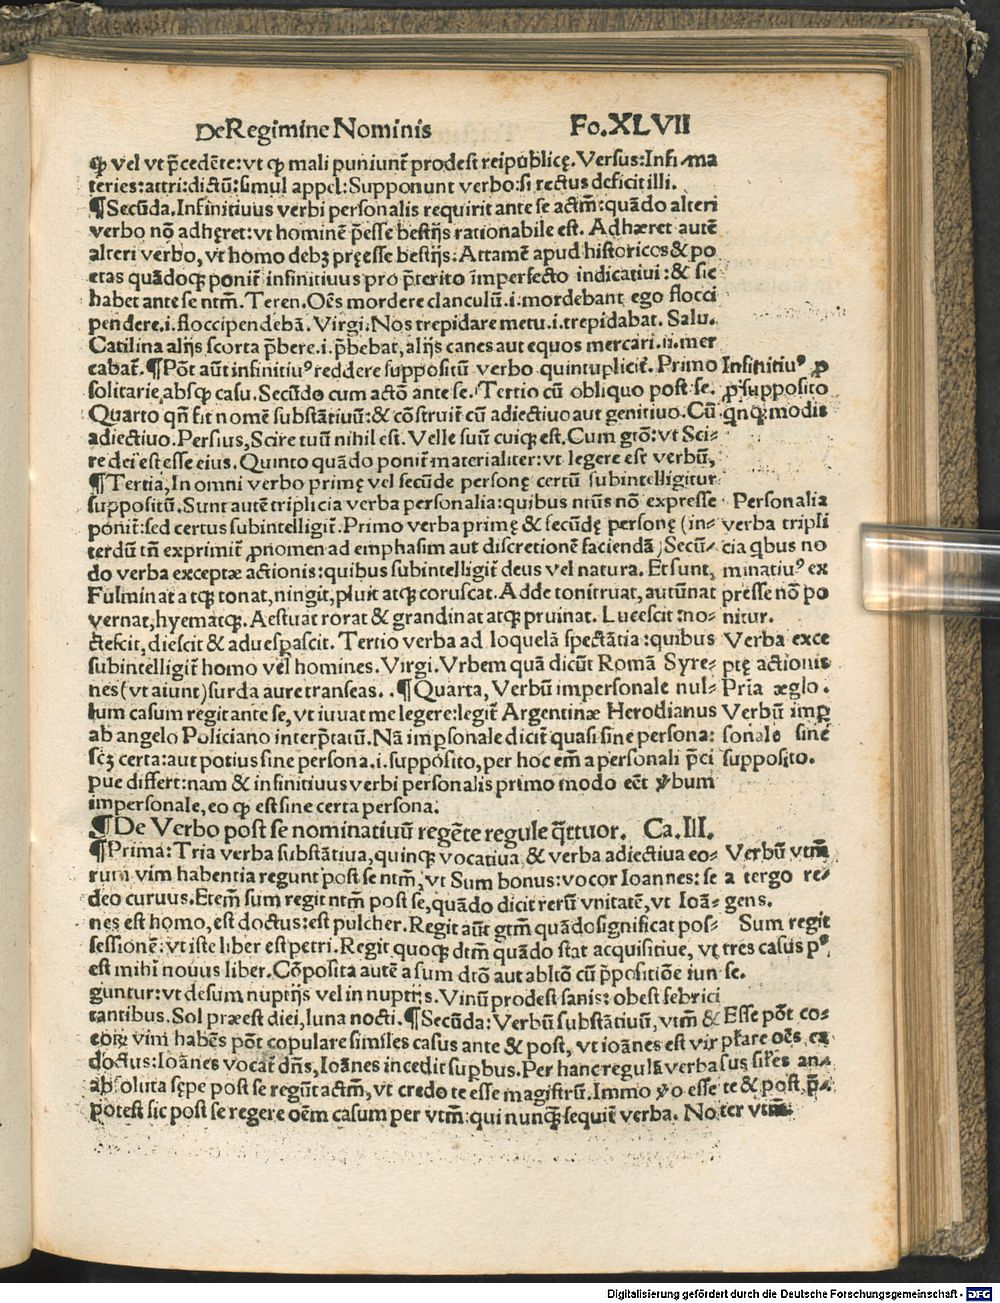 De Regimine Nominis Fo.XLVII
ꝙ vel vt p̄cedēte: vt ꝙ mali puniunt᷑ prodest reipublicę. Versus: Infi ma
teries: attri: dictū: simul appel: Supponunt verbo: si rectus deficit illi.
¶ Secūda. Infinitiuus verbi personalis requirit ante se actm̄: quādo alteri
verbo nō adhęret: vt hominē p̄esse bestijs rationabile est. Adhæret autē
alteri verbo, vt homo debꝫ pręesse bestijs: Attamē apud historicos & po
etas quādoqꝫ ponit᷑ infinitiuus pro p̄terito īmperfecto indicatiui: & sic
habet ante se ntm̄. Teren. Oēs mordere clanculū.i.mordebant ego flocci
pendere.i.floccipendebā. Virgi. Nos trepidare metu.i.trepidabat. Salu.
Catilina alijs scorta p̄bere.i.p̄bebat, alijs canes aut equos mercari.ii.mer
cabat᷑. ¶ Pōt aūt infinitiuꝰ reddere suppositū verbo quintuplicit᷑. Primo
solitarie, absqꝫ casu. Secūdo cum actō ante se. Tertio cū obliquo post se.
Quarto qn̄ fit nomē substātiuū: & cōstruit᷑ cū adiectiuo aut genitiuo. Cū
adiectiuo. Persius, Scire tuū nihil est. Velle suū cuiqꝫ est. Cum gtō: vt Sci-
re dei est esse eius. Quinto quādo ponit᷑ materialiter: vt legere est verbū,
¶ Tertia, In omni verbo primę vel secūde personę certū subintelligitur
suppositū. Sunt autē triplicia verba personalia: quibus ntūs nō expresse
ponit᷑: sed certus subintelligit᷑. Primo verba primę & secūdę personę (in-
terdū tn̄ exprimit᷑ ꝓnomen ad emphasim aut discretionē faciendā) Secū-
do verba exceptæ actionis: quibus subintelligit᷑ deus vel natura. Et sunt,
Fulminat atqꝫ tonat, ningit, pluit atqꝫ coruscat. Adde tonitruat, autūnat
vernat, hyematqꝫ. Aestuat rorat & grandinat atqꝫ pruinat. Lucescit: no-
ctescit, diescit & aduesꝑascit. Tertio verba ad loquelā spectātia: quibus
subintelligit᷑ homo vel homines. Virgi. Vrbem quā dicūt Romā Syre-
nes (vt aiunt) surda aure transeas. ¶ Quarta, Verbū impersonale nul-
lum casum regit ante se, vt iuuat me legere: legit᷑ Argentinæ Herodianus
ab angelo Policiano interp̄tatū. Nā imꝑsonale dicit᷑ quasi sine persona:
scꝫ certa: aut potius sine persona.i.supposito, per hoc em̄ a personali p̄ci
pue differt: nam & infinitiuus verbi personalis primo modo eēt ꝟbum
impersonale, eo ꝙ est sine certa persona:
¶ De Verbo post se nominatiuū regēte regule q̄ttuor. Ca.III.
¶ Prima: Tria verba substātiua, quinqꝫ vocatiua & verba adiectiua eo-
rum vim habentia regunt post se ntm̄, vt Sum bonus: vocor Ioannes: se
deo curuus. Etem̄ sum regit ntm̄ post se, quādo dicit rerū vnitatē, vt Ioā-
nes est homo, est doctus: est pulcher. Regit aūt gtm̄ quādo significat pos-
sessionē: vt iste liber est petri. Regit quoqꝫ dtm̄ quādo stat acquisitiue, vt
est mihi nouus liber. Cōposita autē a sum dtō aut abltō cū p̄positiōe iun
guntur: vt desum nuptijs vel in nuptijs. Vinū prodest sanis: obest febrici
tantibus. Sol præest diei, luna nocti. ¶ Secūda: Verbū substātiuū, vtm̄ &
eoꝝ vim habēs pōt copulare similes casus ante & post, vt ioānes est vir
doctus: Ioānes vocat᷑ dn̄s, Ioānes incedit suꝑbus. Per hanc regulā verba
absoluta sępe post se regūt actm̄, vt credo te esse magistrū. Immo ꝟo esse
potest sic post se regere oēm casum per vtm̄: qui nunqꝫ seꝗt᷑ verba. No
Infinitiuꝰ ꝓ
ꝓ supposito
qnqꝫ modis
Personalia
verba tripli
cia qbus no
minatiuꝰ ex
presse nō po
nitur.
Verba exce
ptę actionis
Pria æglo.
Verbū imꝑ
sonale sine
supposito.
Verbū vtm̄
a tergo re-
gens.
Sum regit
tres casus pꝰ
se.
Esse pōt co-
pl̄are oēs ca
sus sil̄es an-
te & post, p̄-
ter vtm̄.
Digitalisierung gefördert durch die Deutsche Forschungsgemeinschaft - DFG